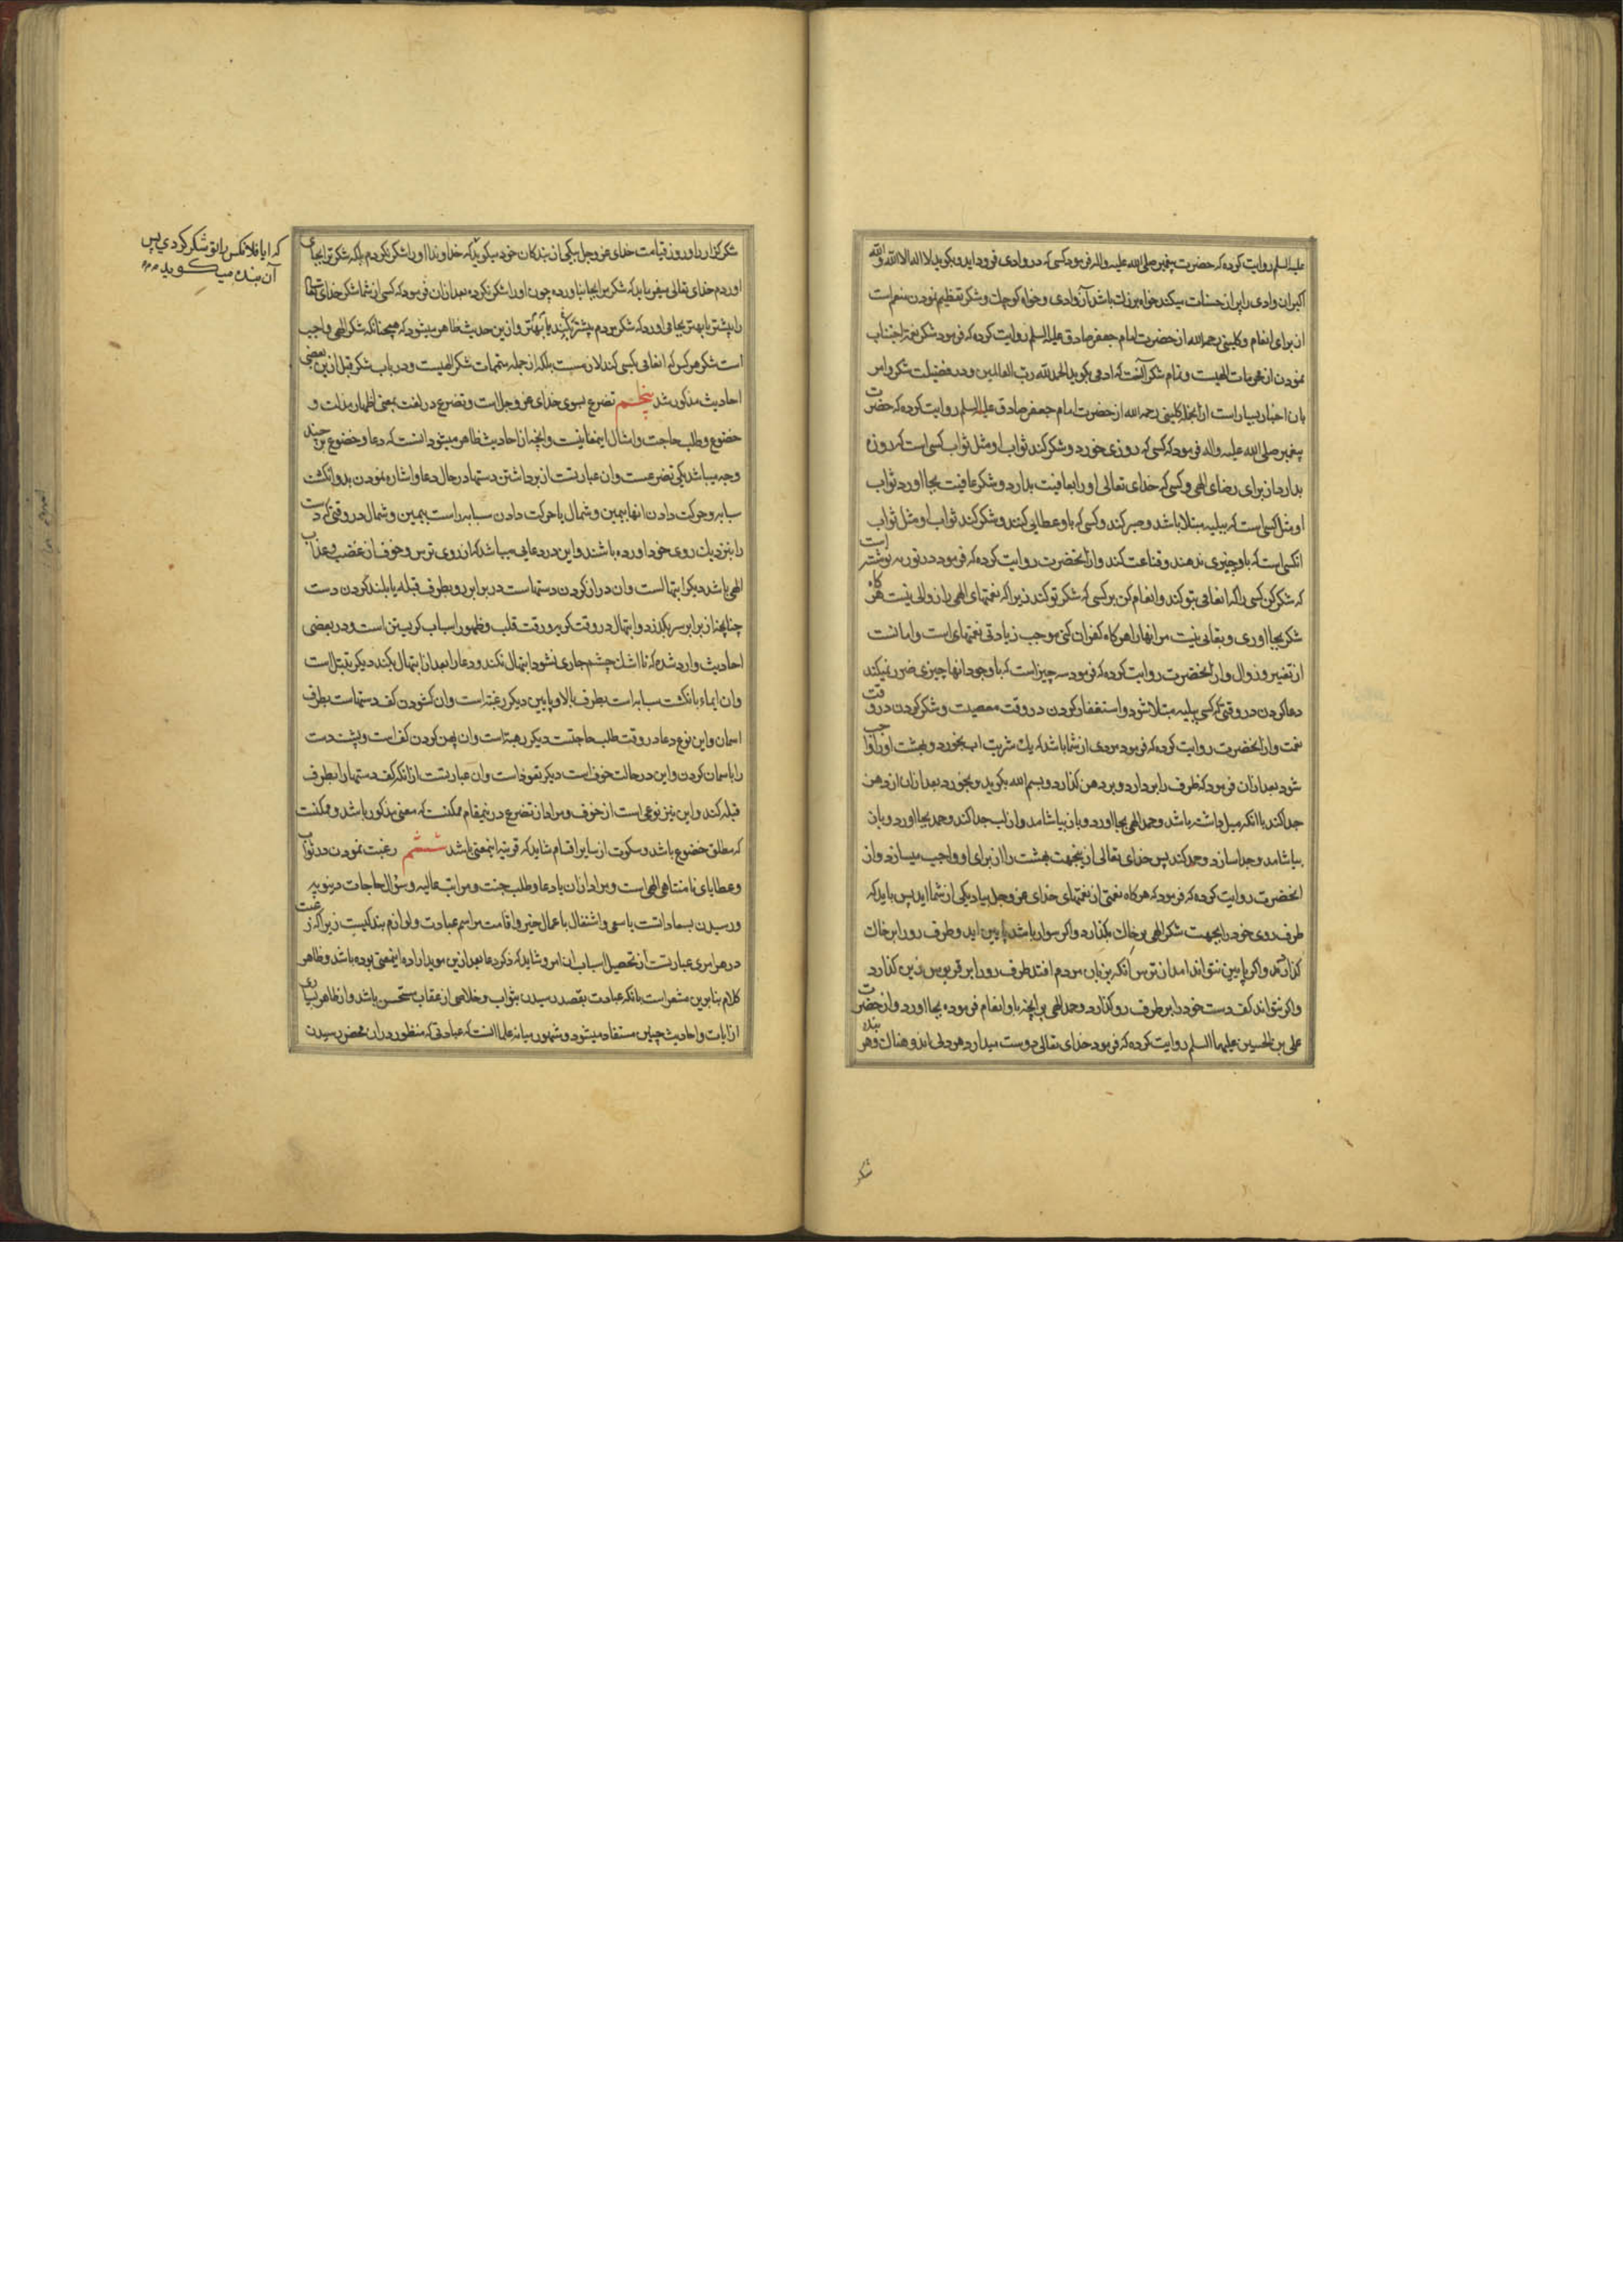 علیه السلم روایت کرده که حضرت پیغمبر صلی الله علیه واله فرمود کسی که در وادی فرود اید و بکوید لا اله الا الله والله
اکبر ان وادی را پر از حسنات میکند خواه بزرك باشد آن وادی و خواه کوچك و شکر تعظیم نمودن منعم است
از برای انعام و کلینی رحمه الله از حضرت امام جعفر صادق علیه السلم روایت کرده که فرمود شکر نعمة اجتناب
نمودن از محرمات الهیست و تمام شکر آنست که ادمی بکوید الحمد لله رب العالمین و در فضیلت شکر و امر
بان اخبار بسیار است از انجمله کلینی رحمه الله از حضرت امام جعفر صادق علیه السلم روایت کرده که حضرت
پیغمبر صلی الله علیه واله فرمود که کسی که روزی خورد و شکر کند ثواب او مثل ثواب کسی است که روزه
بدارد از برای رضای الهی و کسی که خدای تعالی او را بعافیت بدارد و شکر عافیت بجا اورد ثواب
او مثل کسی است که ببلیه مبتلا باشد و صبر کند و کسی که باو عطایی کنند و شکر کند ثواب او مثل ثواب
انکسی است که باو چیزی ندهند و قناعت کند و از انحضرت روایت کرده که فرمود در توریه نوشته است
که شکر کن کسی را که انعامی بتو کند و انعام کن بر کسی که شکر تو کند زیرا که نعمتهای الهی را زوالی نیست هر کاه
شکر بجا اوری و بقایی نیست مر انها را هر کاه کفران کنی موجب زیادتی نعمتهای است و امانست
از تغییر و زوال و از انحضرت روایت کرده که فرمود سه چیز است که با وجود انها چیزی ضرر نمیکند
دعا کردن در وقتی که کسی ببلیه مبتلا شود و استغفار کردن در وقت معصیت و شکر کردن در وقت
نعمت و از انحضرت روایت کرده که فرمود مردی از شما باشد که یك شربت اب بخورد و بهشت او را واجب
شود بعد ازان فرمود که ظرف را بردارد و بر دهن کذارد و بسم الله بکوید و بخورد بعد ازان از دهن
جدا کند با انکه میل داشته باشد و حمد الهی بجا اورد و باز بیاشامد و از لب جدا کند و حمد بجا اورد و باز
بیاشامد و جدا سازد و حمد کند پس خدای تعالی ازینجهت بهشت را از برای او واجب میسازد و از
انحضرت روایت کرده که فرمود که هر کاه نعمتی از نعمتهای خدای عز و جل بیاد یکی از شما اید پس باید که
طرف روی خود را بجهت شکر الهی بر خاك بکذارد و اکر سوار باشد پایین اید و طرف رو را بر خاك
کذارد و اکر پایین نتواند امد از ترس انکه بزبان مردم افتد طرف رو را بر قربوس زین کذارد
و اکر نتواند کف دست خود را بر طرف رو کذارد و حمد الهی بر انچه باو انعام فرموده بجا اورد و از حضرت
علی بن الحسین علیهما السلم روایت کرده که فرمود خدای تعالی دوست میدارد هر دلی اندوهناك و هر بنده
شکر
شکر کزار را و روز قیامت خدای عز و جل بیکی از بندکان خود میکوید که خداوندا او را شکر نکردم بلکه شکر ترا بجای
اوردم خدای تعالی میفرماید که شکر مرا بجا نیاورده چون او را شکر نکرده بعد ازان فرمود که کسی از شما شکر خدای تعالی
را بیشتر یا بهتر بجا می اورد که شکر مردم بیشتر بکند یا بهتر و ازین حدیث ظاهر میشود که همچنانکه شکر الهی واجب
است شکر هر کس که انعامی بکسی کند لازمست بلکه از جمله متممات شکر الهیست و در باب شکر قبل ازین بعضی
احادیث مذکور شد پنجم تضرع بسوی خدای عز و جل است و تضرع در لغت بمعنی اظهار مذلت و
خضوع و طلب حاجت و امثال اینمعانیست و انچه از احادیث ظاهر میشود انست که دعا و خضوع بر چند
وجه میباشد یکی تضرعست و ان عبارتست از برداشتن دستها در حال دعا و اشاره نمودن بدو انکشت
سبابه و حرکت دادن انها بیمین و شمال یا حرکت دادن سبابه راست بیمین و شمال در وقتی که دست
را بنزدیك روی خود اورده باشند و این در دعایی میباشد که از روی ترس و خوف از غضب و عذاب
الهی باشد دیکر ابتهالست و ان دراز کردن دستهاست در برابر رو بطرف قبله یا بلند کردن دست
چنانچه از برابر سر بکذرد و ابتهال در وقت کریه و رقت قلب و ظهور اسباب کریستن است و در بعضی
احادیث وارد شده که تا اشك چشم جاری نشود ابتهال نکند و دعا را بعد از ابتهال بکند دیکر تبتل است
و ان ایماء بانکشت سبابه است بطرف بالا و پایین دیکر رغبة است و ان کشودن کف دستهاست بطرف
اسمان و این نوع دعا در وقت طلب حاجتست دیکر رهبة است و ان پهن کردن کف است و پشت دست
را باسمان کردن و این در حالت خوف است دیکر تعوذ است و ان عبارتست از انکه کف دستها را بطرف
قبله کند و این نیز نوعی است از خوف و مراد از تضرع درینمقام ممکنست که معنی مذکور باشد و ممکنست
که مطلق خضوع باشد و سکوت از سایر اقسام شاید که قرینه اینمعنی باشد ششم رغبت نمودن در ثواب
و عطایای نامتناهی الهی است و مراد ازان یا دعا و طلب جنت و مراتب عالیه و سؤال حاجات دنیویه
و رسیدن بسعاداتست یا سعی و اشتغال باعمال خیر و اقامت مراسم عبادت و لوازم بندکیست زیرا که رغبت
در هر امری عبارتست از تحصیل اسباب ان امر و شاید که ذکر دعا بعد ازین موید اراده اینمعنی بوده باشد و ظاهر
کلام بنابرین مشعر است بانکه عبادت بقصد رسیدن بثواب و خلاصی از عقاب مستحسن باشد و از ظاهر بسیاری
از ایات و احادیث چنین مستفاد میشود و مشهور میانه علما انست که عبادتی که منظور دران محض رسیدن
که ایا فلانکس را تو شکر کردی پس
آن بنده میکوید